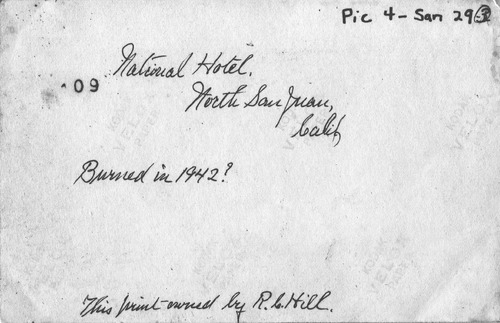 Pic 4 - San 29-3
National Hotel.
09
North San Juan,
Calif,
Burned in 1942?
This print owned by R.C. Hill.
KODAK
VELOX
PAPER